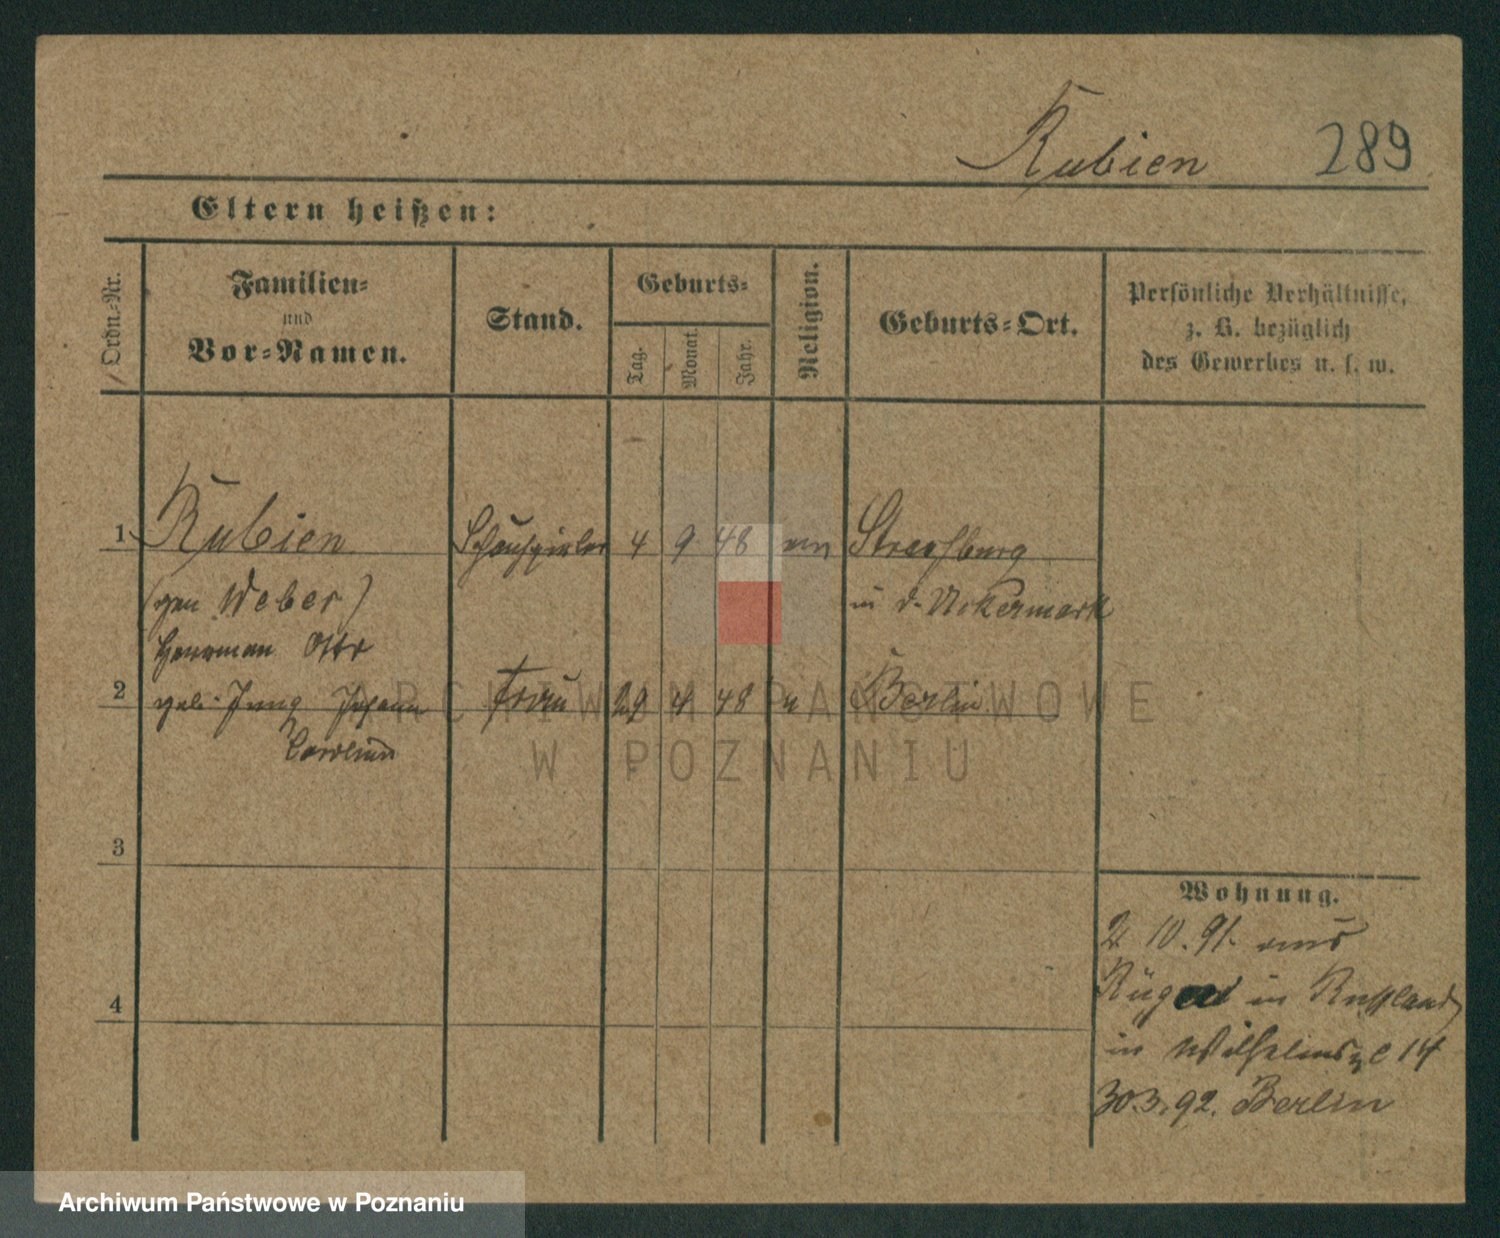 Rubien 289
Eltern heißen:
Ordn.-Nr.
Familien-
und
Vor-Namen.
Stand.
Geburts-
Tag.
Monat.
Jahr.
Religion.
Geburts-Ort.
Persönliche Verhältnisse,
z. B. bezüglich
des Gewerbes u. s. w.
1 Rubien Schauspieler 4 9 48 Strassburg
(gen Weber) in d. Uckermark
Herrman Otto
2 geb. Jung Johann Frau 29 4 48 Berlin
Caroline
3
4
Wohnung.
10. 91. aus
in Russland
in Wilhelmspl 14
30.3.92. Berlin
ARCHIWUM PAŃSTWOWE
W POZNANIU
Archiwum Państwowe w Poznaniu